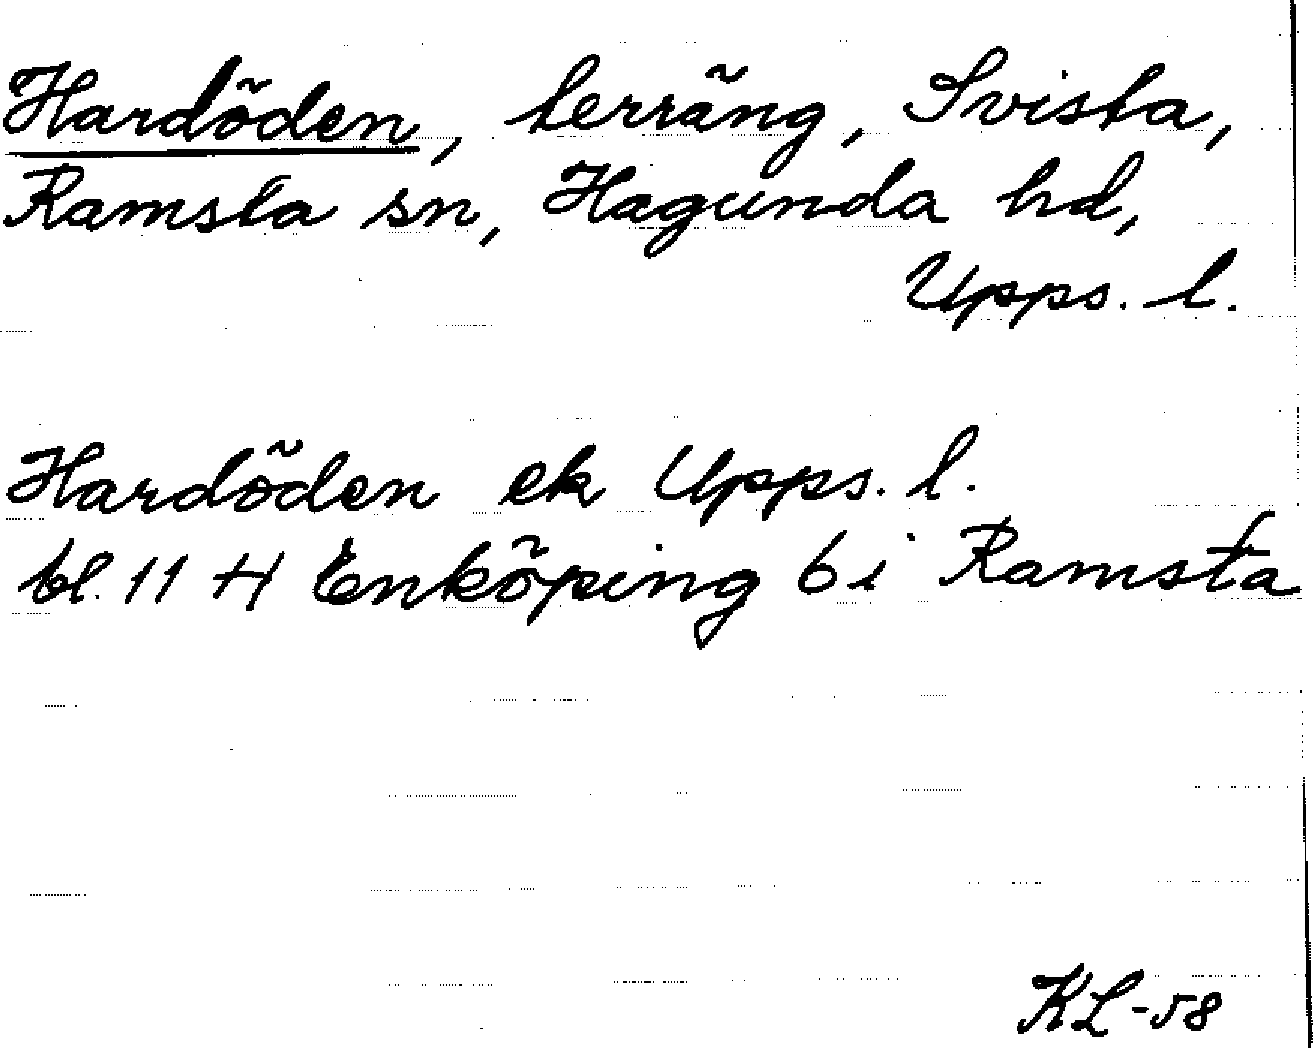 Hardöden, terräng, Svista,
Ramsta sn, Hagunda hd,
Upps. l.
Hardöden ek Upps. l.
bl. 11 H Enköping 6 i Ramsta
KL-58